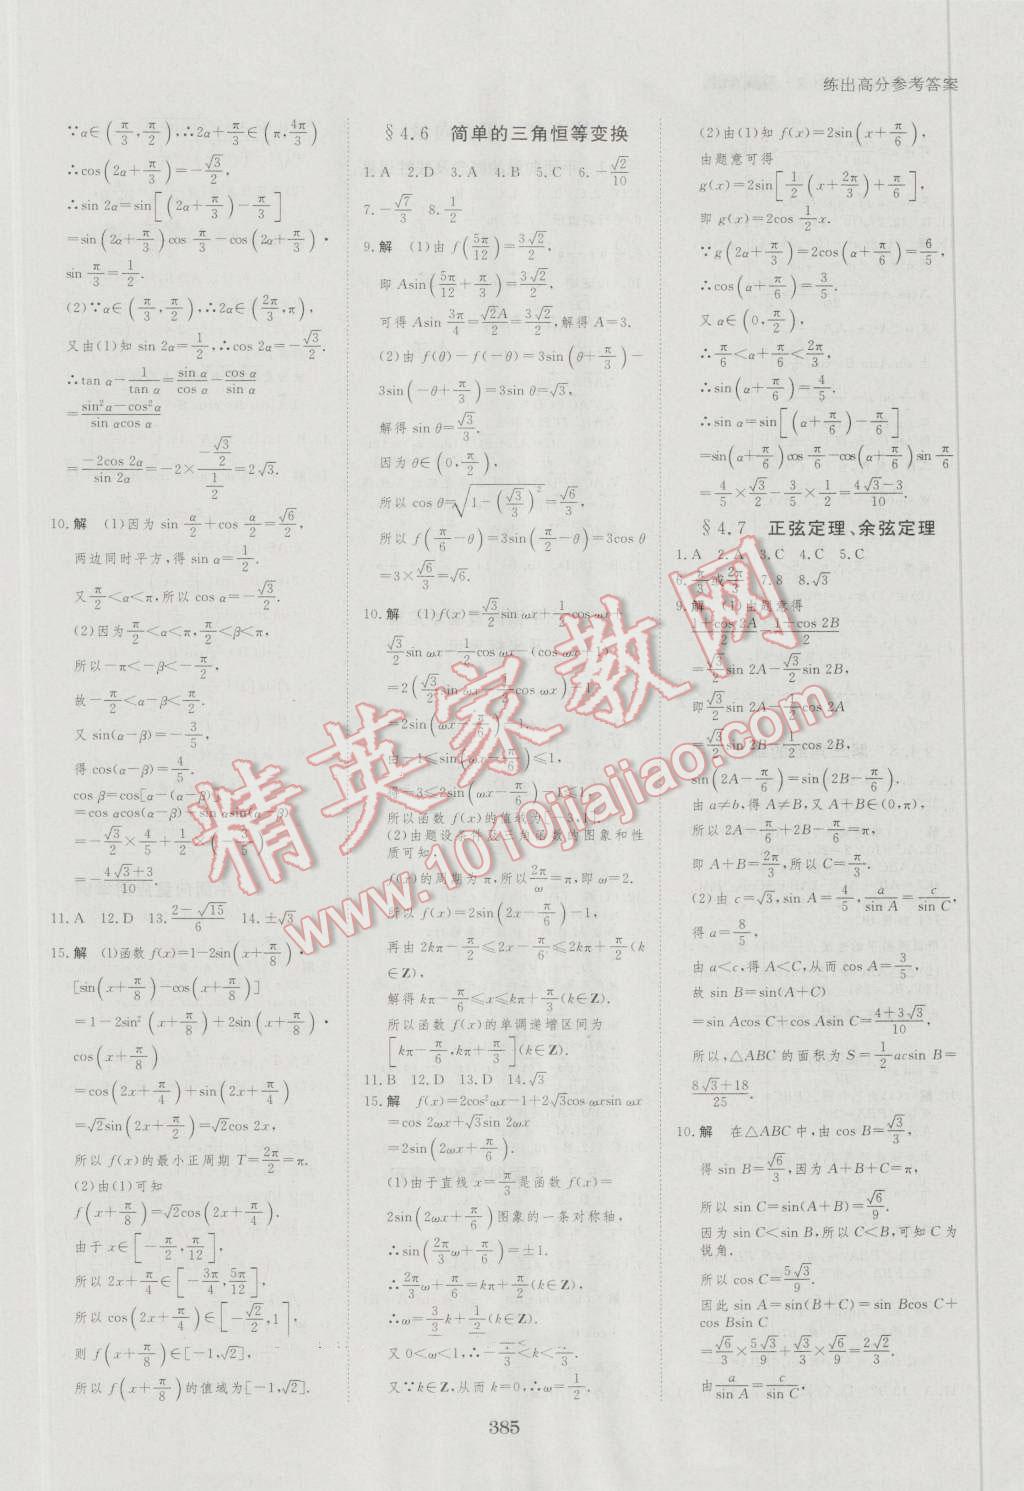 练出高分参考答案
∵α∈(π/3, π/2), ∴2α+π/3∈(π, 4π/3)
∴cos(2α+π/3)=-√3/2,
∴sin 2α=sin[(2α+π/3)-π/3]
=sin(2α+π/3)cos π/3-cos(2α+π/3)·
sin π/3=1/2.
(2)∵α∈(π/3, π/2), ∴2α∈(2π/3, π),
又由(1)知 sin 2α=1/2, ∴cos 2α=-√3/2.
∴tan α-1/tan α=sin α/cos α-cos α/sin α
=(sin²α-cos²α)/(sin αcos α)
=-2cos 2α/sin 2α=-2×(-√3/2)/(1/2)=2√3.
10.解 (1)因为 sin α/2+cos α/2=√6/2,
两边同时平方,得 sin α=1/2.
又π/2<α<π,所以 cos α=-√3/2.
(2)因为π/2<α<π, π/2<β<π,
所以-π<-β<-π/2.
故-π/2<α-β<π/2.
又 sin(α-β)=-3/5,
得 cos(α-β)=4/5.
cos β=cos[α-(α-β)]
=cos αcos(α-β)+sin αsin(α-β)
=-√3/2×4/5+1/2×(-3/5)
=-(4√3+3)/10.
11.A 12.D 13.(2-√15)/6 14.±√3
15.解 (1)函数 f(x)=1-2sin(x+π/8)·
[sin(x+π/8)-cos(x+π/8)]
=1-2sin²(x+π/8)+2sin(x+π/8)·
cos(x+π/8)
=cos(2x+π/4)+sin(2x+π/4)
=√2sin(2x+π/2)=√2cos 2x,
所以 f(x)的最小正周期 T=2π/2=π.
(2)由(1)可知
f(x+π/8)=√2cos(2x+π/4).
由于 x∈[-π/2, π/12],
所以 2x+π/4∈[-3π/4, 5π/12],
所以 cos(2x+π/4)∈[-√2/2, 1],
则 f(x+π/8)∈[-1,√2],
所以 f(x+π/8)的值域为[-1,√2].
§4.6 简单的三角恒等变换
1.A 2.D 3.A 4.B 5.C 6.-√2/10
7.-√7/3 8.1/2
9.解 (1)由 f(5π/12)=3√2/2,
即 Asin(5π/12+π/3)=3√2/2,
可得 Asin 3π/4=√2A/2=3√2/2,解得 A=3.
(2)由 f(θ)-f(-θ)=3sin(θ+π/3)-
3sin(-θ+π/3)=3sin θ=√3,
解得 sin θ=√3/3.
因为 θ∈(0, π/2),
所以 cos θ=√(1-(√3/3)²)=√6/3,
所以 f(π/6-θ)=3sin(π/2-θ)=3cos θ
=3×√6/3=√6.
10.解 (1)f(x)=√3/2 sin ωx+1/2 cos ωx+
√3/2 sin ωx-1/2 cos ωx-(cos ωx+1)
=2(√3/2 sin ωx-1/2 cos ωx)-1
=2sin(ωx-π/6)-1.
由-1≤sin(ωx-π/6)≤1,
得-3≤2sin(ωx-π/6)-1≤1,
所以函数 f(x)的值域为[-3,1].
(2)由题设条件及三角函数的图象和性
质可知,
f(x)的周期为 π,所以2π/ω=π,即 ω=2.
所以 f(x)=2sin(2x-π/6)-1,
再由 2kπ-π/2≤2x-π/6≤2kπ+π/2(k
∈Z),
解得 kπ-π/6≤x≤kπ+π/3(k∈Z).
所以函数 f(x)的单调递增区间为
[kπ-π/6, kπ+π/3](k∈Z).
11.B 12.D 13.D 14.√3
15.解 f(x)=2cos²ωx-1+2√3cos ωxsin ωx
=cos 2ωx+√3sin 2ωx
=2sin(2ωx+π/6).
(1)由于直线 x=π/3是函数 f(x)=
2sin(2ωx+π/6)图象的一条对称轴,
∴sin(2π/3 ω+π/6)=±1.
∴2π/3 ω+π/6=kπ+π/2(k∈Z),
∴ω=3/2 k+1/2(k∈Z).
又 0<ω<1,∴-1/3<k<1/3.
又∵k∈Z,从而 k=0,∴ω=1/2.
(2)由(1)知 f(x)=2sin(x+π/6),
由题意可得
g(x)=2sin[1/2(x+2π/3)+π/6],
即 g(x)=2cos 1/2 x.
∵g(2α+π/3)=2cos(α+π/6)=6/5,
∴cos(α+π/6)=3/5.
又 α∈(0, π/2),
∴π/6<α+π/6<2π/3,
∴sin(α+π/6)=4/5.
∴sin α=sin[(α+π/6)-π/6]
=sin(α+π/6)cos π/6-cos(α+π/6)sin π/6
=4/5×√3/2-3/5×1/2=(4√3-3)/10.
§4.7 正弦定理、余弦定理
1.A 2.A 3.C 4.C 5.C
6.π/3或2π/3 7.8 8.√3
9.解 (1)由题意得
(1+cos 2A)/2-(1+cos 2B)/2
=√3/2 sin 2A-√3/2 sin 2B,
即√3/2 sin 2A-1/2 cos 2A
=√3/2 sin 2B-1/2 cos 2B,
sin(2A-π/6)=sin(2B-π/6).
由 a≠b,得 A≠B,又 A+B∈(0,π),
所以 2A-π/6+2B-π/6=π,
即 A+B=2π/3,所以 C=π/3.
(2)由 c=√3,sin A=4/5,a/sin A=c/sin C,
得 a=8/5,
由 a<c,得 A<C,从而 cos A=3/5,
故 sin B=sin(A+C)
=sin Acos C+cos Asin C=(4+3√3)/10,
所以,△ABC 的面积为 S=1/2 acsin B=
(8√3+18)/25.
10.解 在△ABC 中,由 cos B=√3/3,
得 sin B=√6/3,因为 A+B+C=π,
所以 sin C=sin(A+B)=√6/9.
因为 sin C<sin B,所以 C<B,可知 C 为
锐角.
所以 cos C=5√3/9.
因此 sin A=sin(B+C)=sin Bcos C+
cos Bsin C
=√6/3×5√3/9+√3/3×√6/9=2√2/3.
由 a/sin A=c/sin C,
385
精英家教网
www.1010jiajiao.com